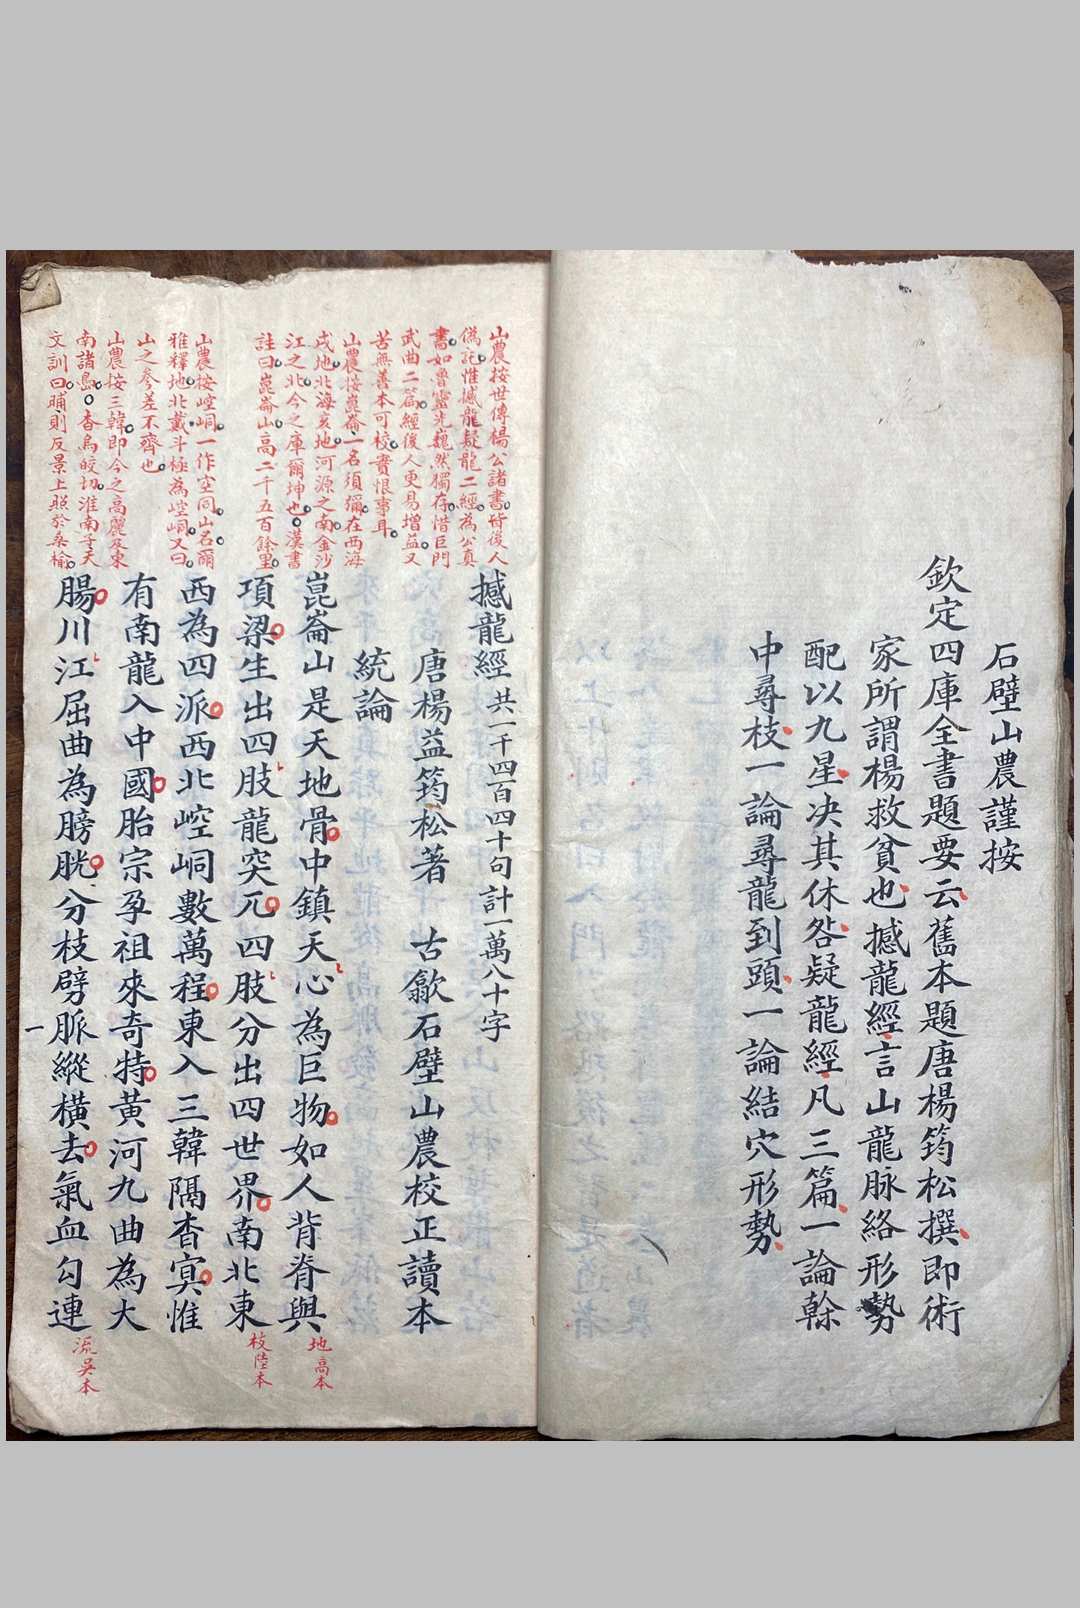 石壁山農謹按
欽定四庫全書題要云舊本題唐楊筠松撰即術
家所謂楊救貧也撼龍經言山龍脉絡形勢
配以九星决其休咎疑龍經凡三篇一論榦
中尋枝一論尋龍到頭一論結穴形勢
山農按世傳楊公諸書皆後人
偽託惟撼龍疑龍二經為公真
書如魯靈光巍然獨存惜巨門
武曲二篇經後人更易增益又
苦無善本可校實恨事耳
山農按崑崙一名須彌在西海
戌地北海亥地河源之南金沙
江之北今之庫爾坤也漢書
註曰崑崙山高二千五百餘里
山農按崆峒一作空同山名爾
雅釋地北戴斗極為崆峒又曰
山之參差不齊也
山農按三韓即今之高麗及東
南諸島杳烏皎切淮南子天
文訓曰晡則反景上照於桑榆
撼龍經共一千四百四十句計一萬八十字
唐楊益筠松著 古歙石壁山農校正讀本
統論
崑崙山是天地骨中鎮天心為巨物如人背脊與
項梁生出四肢龍突兀四肢分出四世界南北東
西為四派西北崆峒數萬程東入三韓隔杳冥惟
有南龍入中國胎宗孕祖來奇特黃河九曲為大
腸川江屈曲為膀胱分枝劈脈縱橫去氣血勾連
地高本
枝陸本
流吳本
一